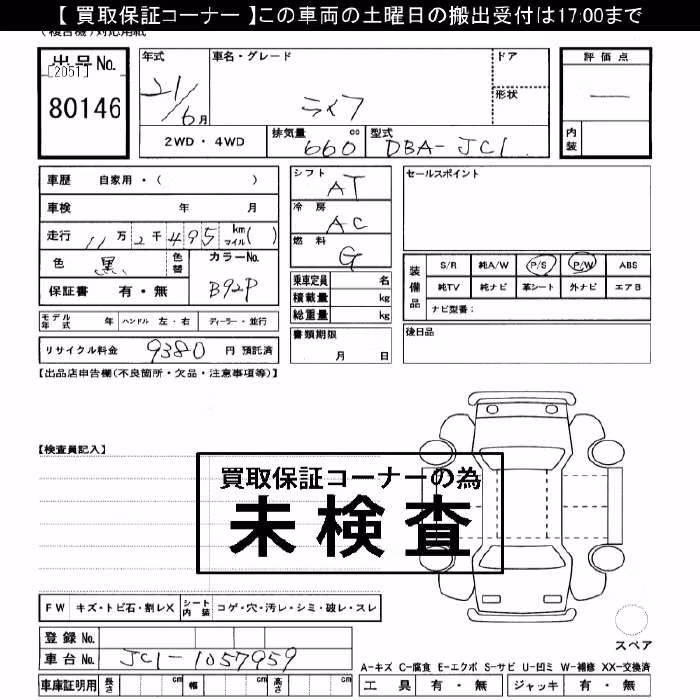 【 買取保証コーナー 】この車両の土曜日の搬出受付は17:00まで
(複合機)対応用紙
出品No.
[2051]
80146
年式
21/6月
車名・グレード
ライフ
ドア
形状
評価点
—
内装
2WD・4WD
排気量
660 cc
型式
DBA-JC1
車歴 自家用・( )
車検 年 月
走行 11万2千495 km マイル( )
色 黒 色替
カラーNo.
B92P
保証書 有・無
シフト
AT
冷房
AC
燃料
G
乗車定員 名
積載量 kg
総重量 kg
書類期限
月 日
セールスポイント
装備品
S/R 純A/W P/S P/W ABS
純TV 純ナビ 革シート 外ナビ エアB
ナビ型番:
後日品
モデル年式 年 ハンドル 左・右 ディーラー・並行
リサイクル料金 9380 円 預託済
【出品店申告欄(不良箇所・欠品・注意事項等)】
【検査員記入】
買取保証コーナーの為
未検査
FW キズ・トビ石・割レX シート内装 コゲ・穴・汚レ・シミ・破レ・スレ
登録No.
車台No. JC1-1057959
車庫証明用 長さ cm 幅 cm 高さ cm
スペア
A-キズ C-腐食 E-エクボ S-サビ U-凹ミ W-補修 XX-交換済
工具 有・無 ジャッキ 有・無